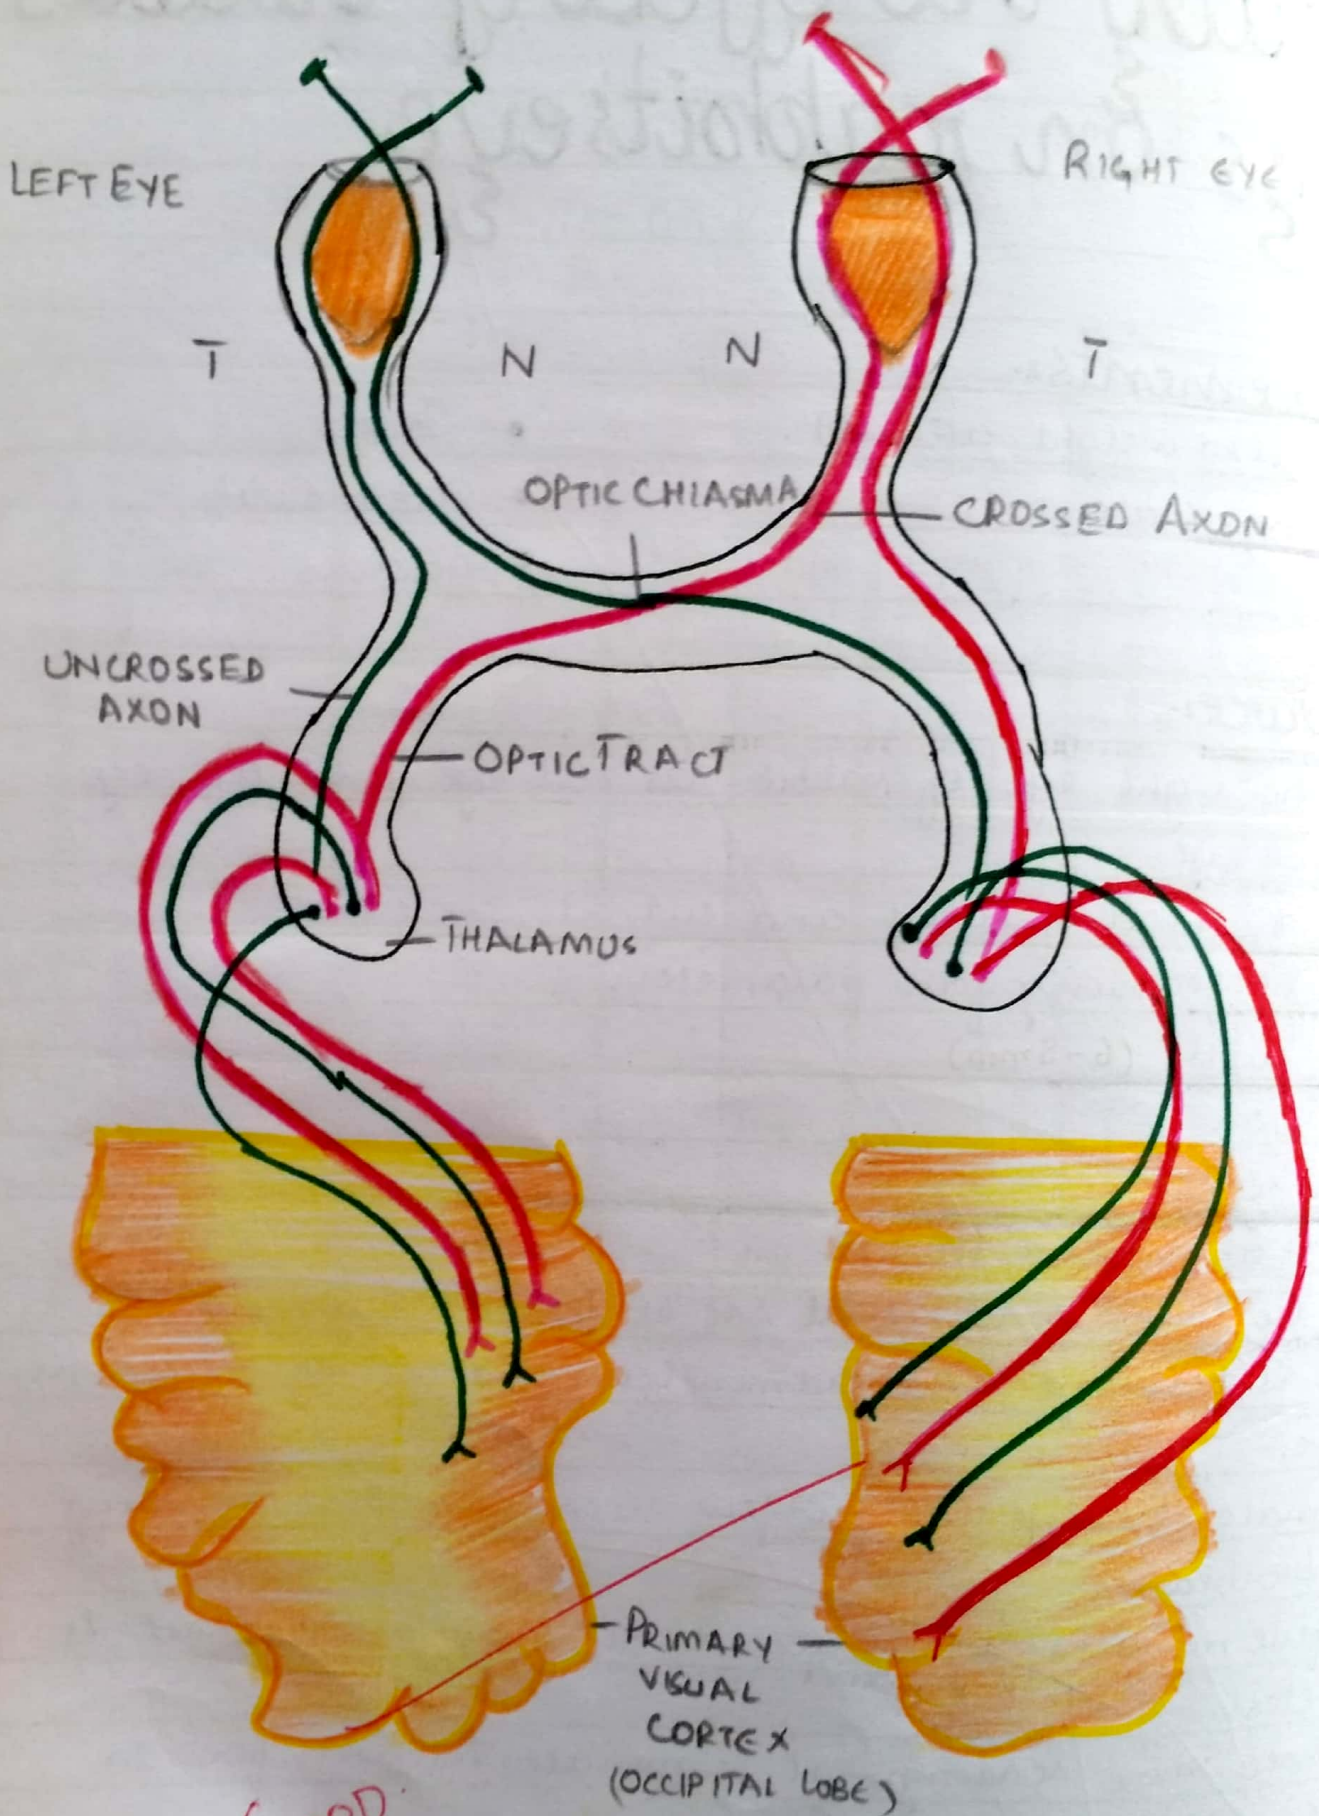 LEFT EYE
RIGHT EYE
T
N
N
T
OPTIC CHIASMA
CROSSED AXON
UNCROSSED
AXON
OPTIC TRACT
THALAMUS
(6-8 mb)
PRIMARY
VISUAL
CORTEX
(OCCIPITAL LOBE)